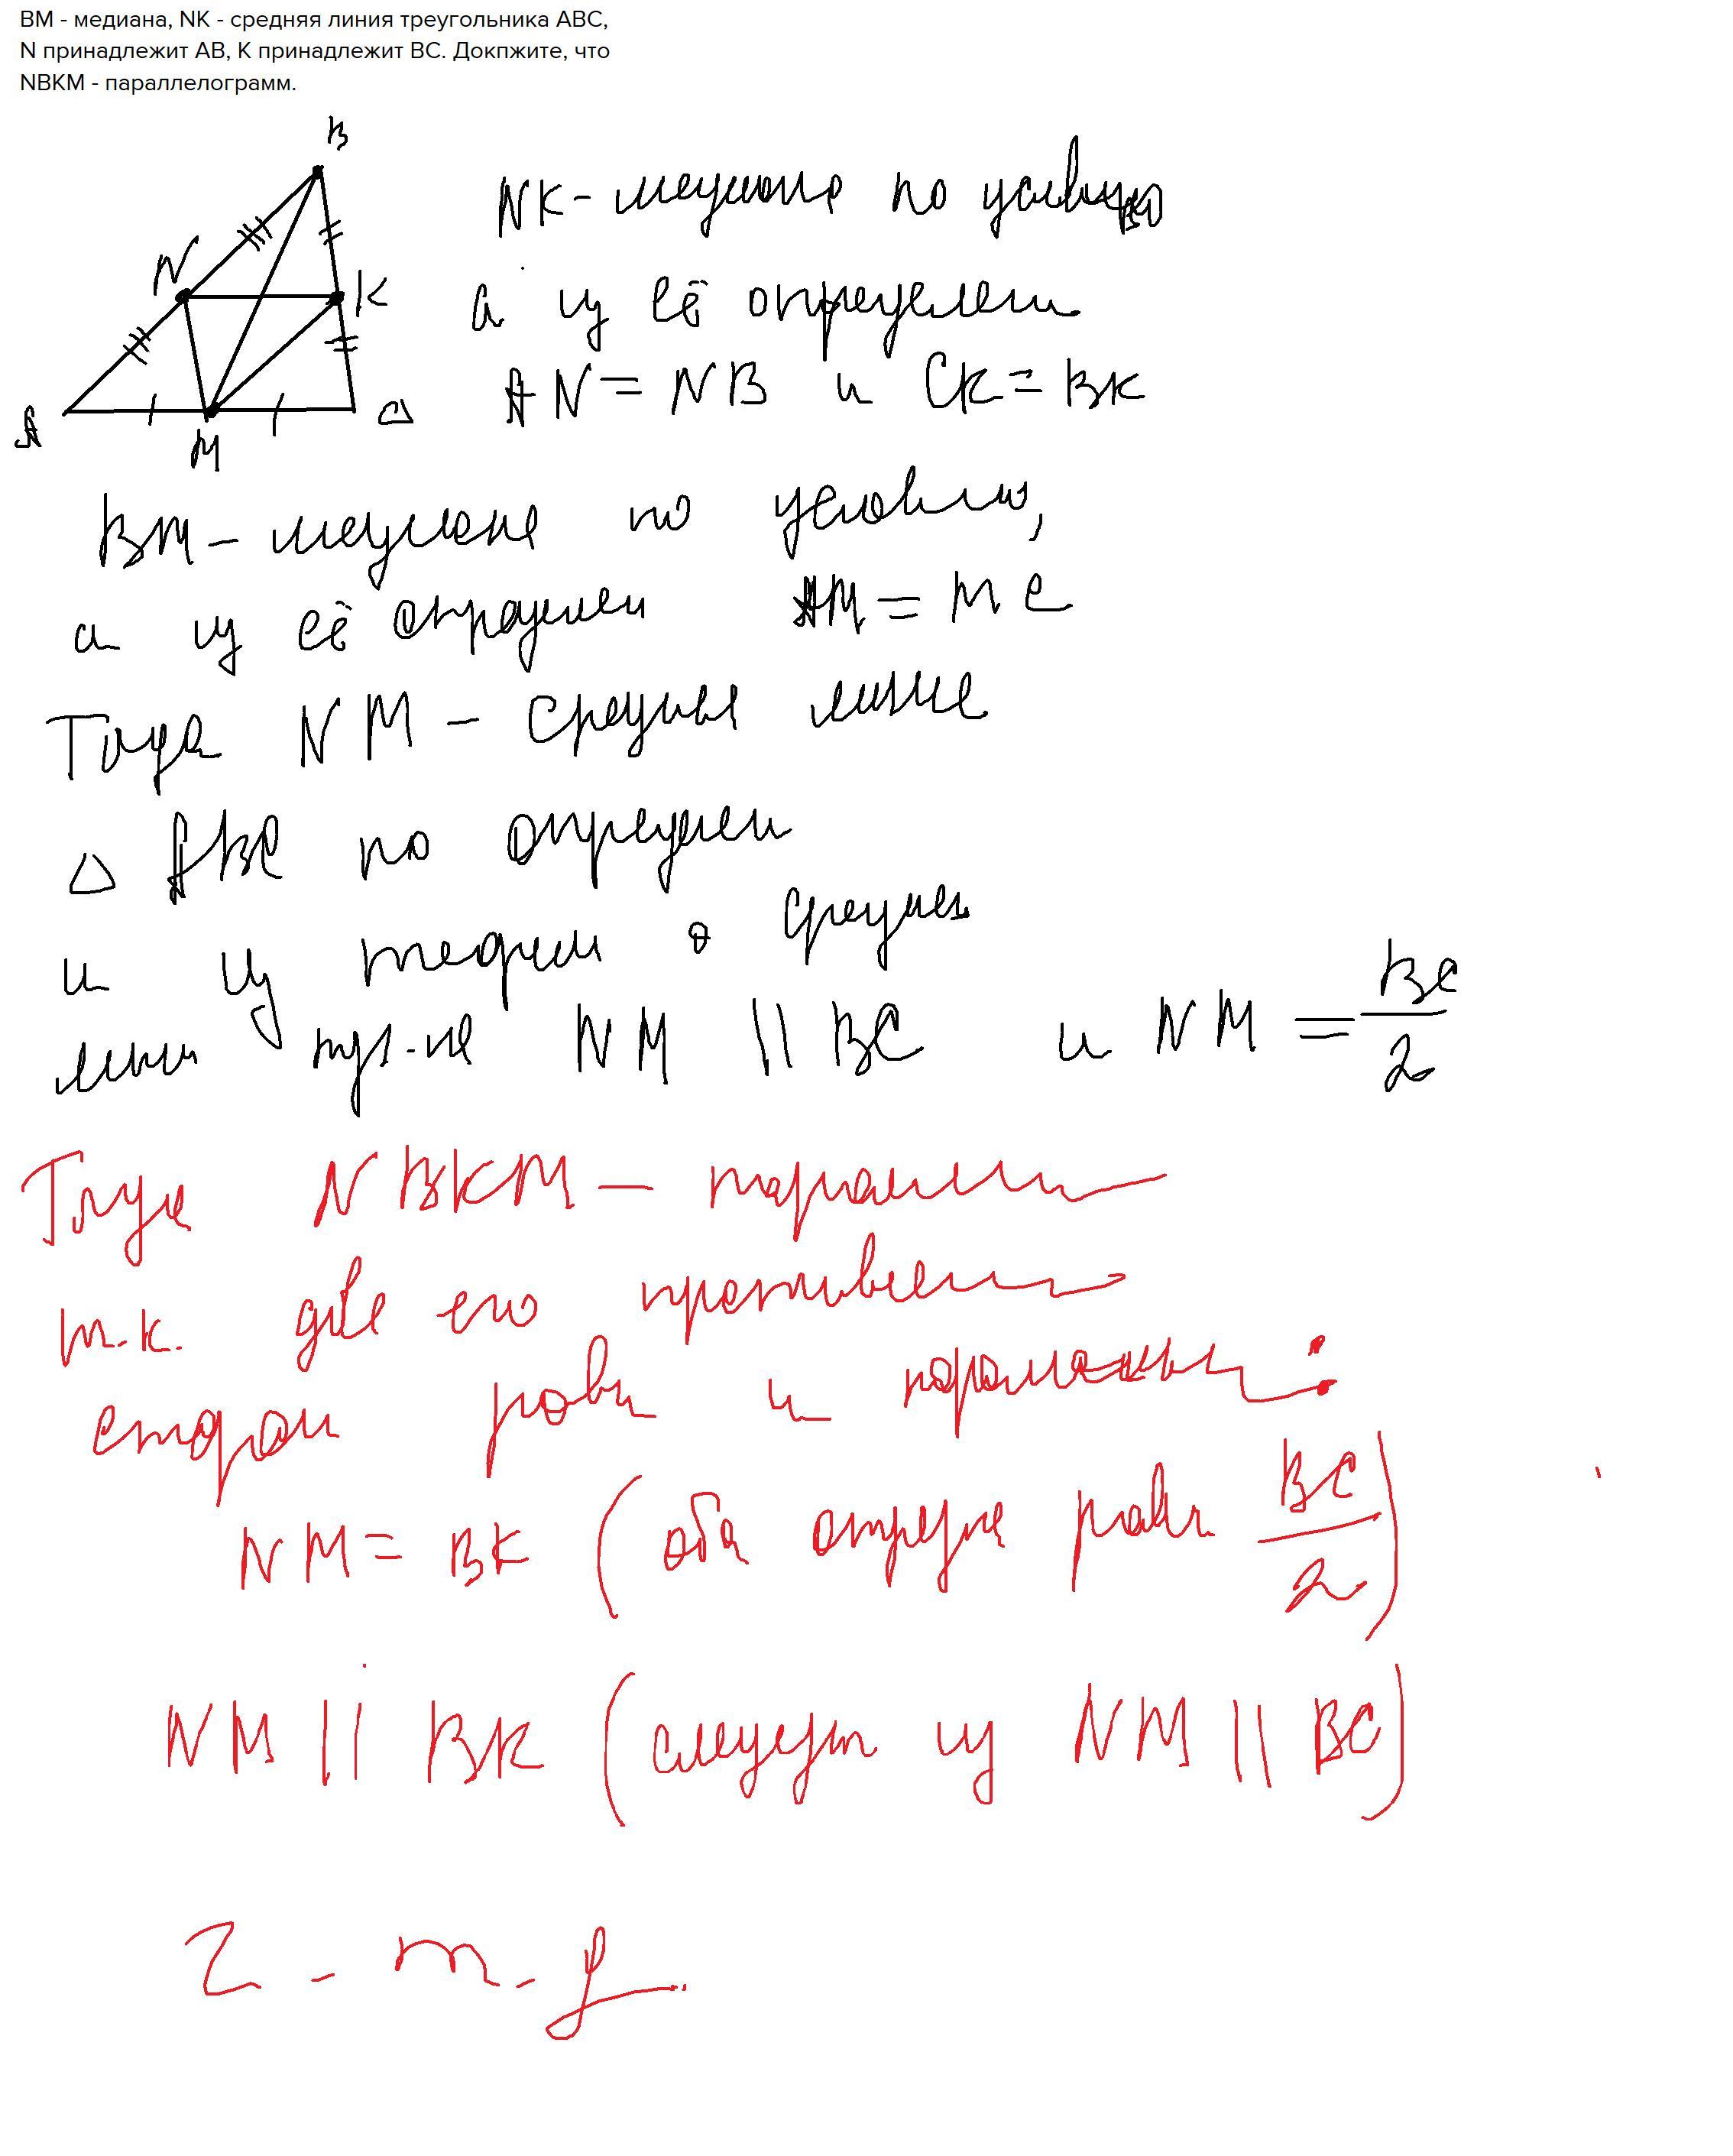 BM - медиана, NK - средняя линия треугольника ABC,
N принадлежит AB, K принадлежит BC. Докпжите, что
NBKM - параллелограмм.
B
N
K
A
M
C
NK - медиана по условию
а из её определен
AN = NB и CK = BK
BM - медиана по условию,
а из её определен AM = MC
Тогда NM - средняя линия
△ ABC по определен
и из теорем о средней
линии тр-ка NM || BC и NM = BC/2
Тогда NBKM - параллел
т.к. две его противопол
сторон равн и параллельны:
NM = BK (оба отрезка равн BC/2)
NM || BK (следует из NM || BC)
ч.т.д.